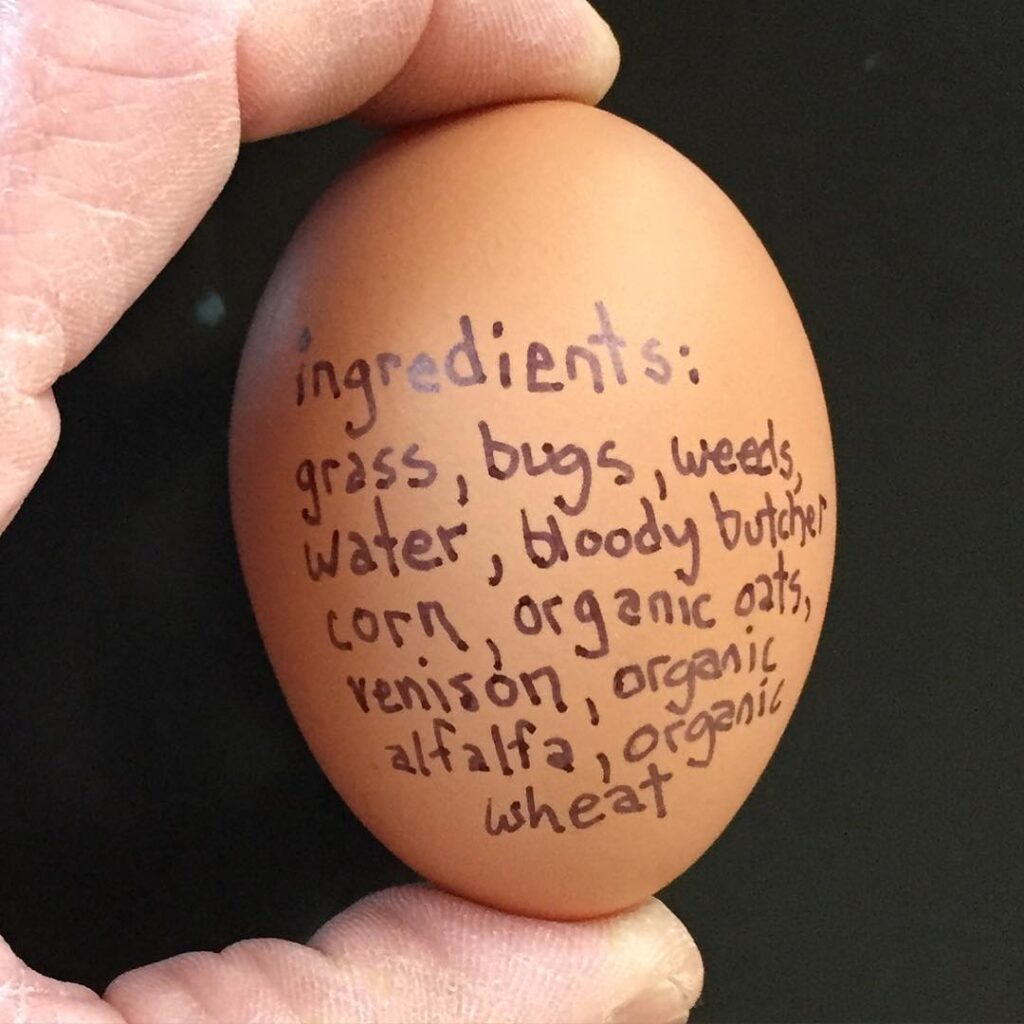 ingredients:
grass, bugs, weeds,
water, bloody butcher
corn, organic oats,
venison, organic
alfalfa, organic
wheat